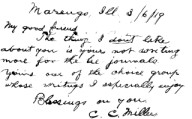 Marengo, Ill. 3/6/19
My good friend
The thing I don't like
about you is your not writing
more for the bee journals
You're one of the choice group
whose writings I especially enjoy
Blessings on you
C. C. Miller